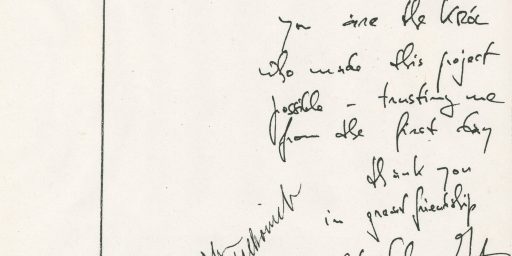 you are the
who made this project
possible - trusting me
from the first day
thank you
in great friendship